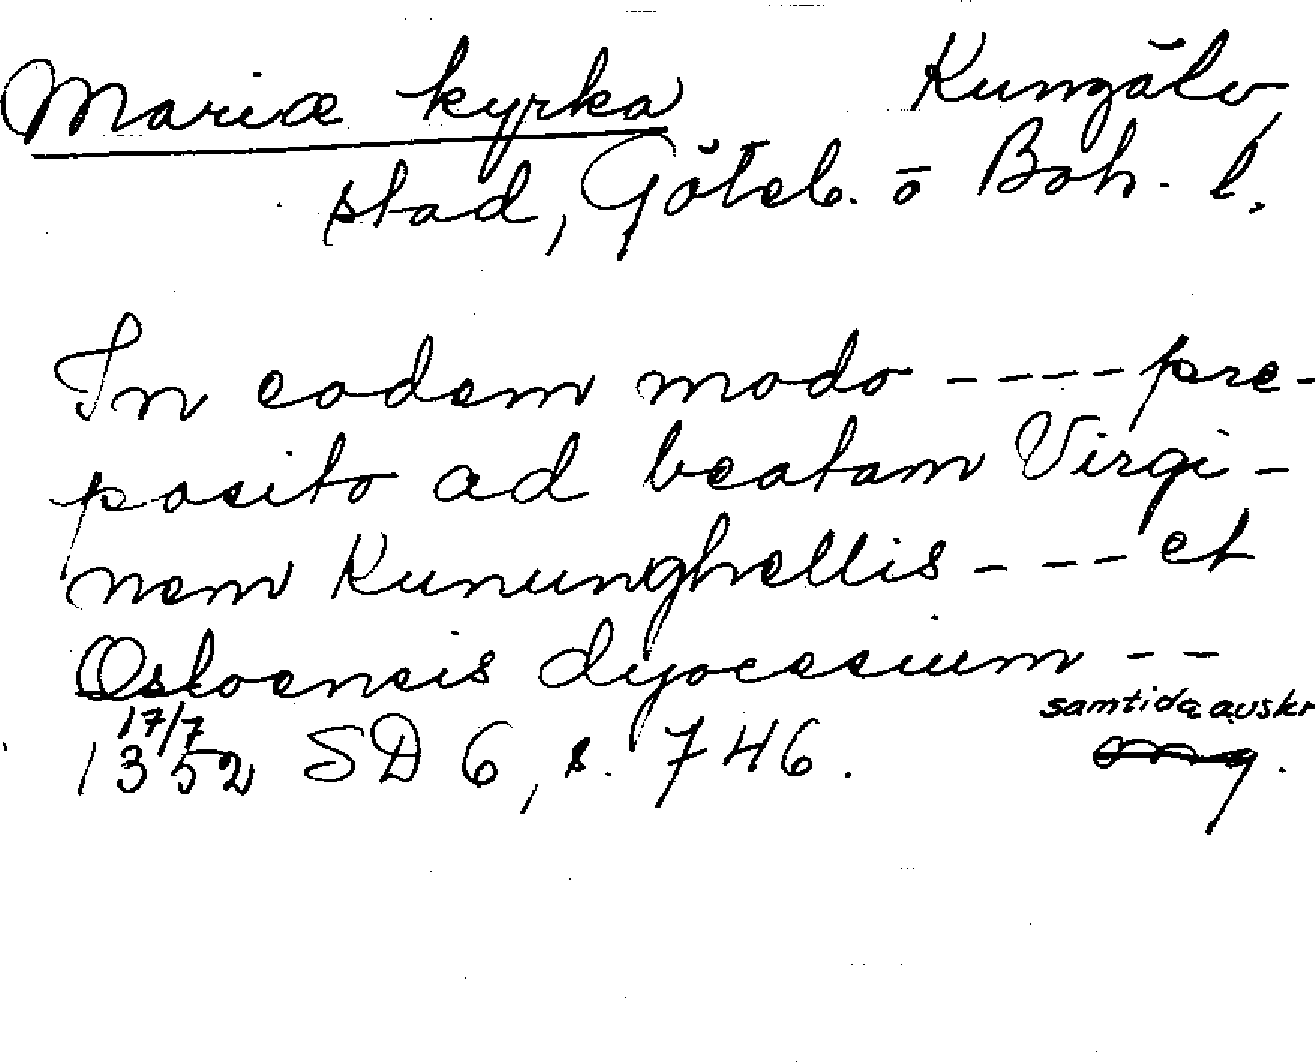 Mariæ kyrka Kungälv
stad, Göteb. o Boh. l.
In eodem modo ---- pre-
posito ad beatam Virgi-
nem Kununghellis --- et
Osloensis dyocesium --
samtida avskr
17/7
1352 SD 6, s. 746.